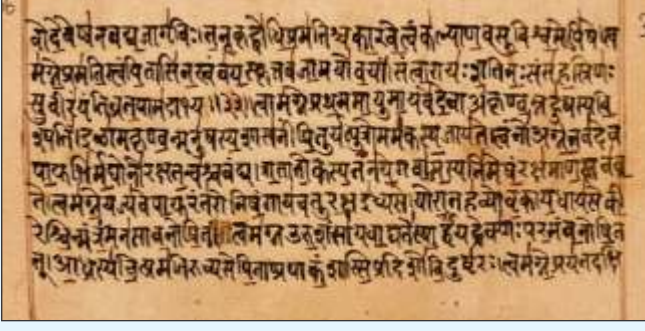 वो देवेष्वनवद्य जागृविः। तनूकृद्बोधि प्रमतिश्च कारवे त्वं कल्याण वसु विश्वमोपिषे। त्व
मग्ने प्रमतिस्त्वं पितासि नस्त्वं वयस्कृत्तव जामयो वयं। सं त्वा रायः शतिनः सं सहस्रिणः
सुवीरं यंति व्रतपामदाभ्य॥३३॥ त्वामग्ने प्रथममायुमायवे देवा अकृण्वन्नहुषस्य वि
श्पतिं। इळामकृण्वन्मनुषस्य शासनीं पितुर्यत्पुत्रो ममकस्य जायते। त्वं नो अग्ने तव देव
पायुभिर्मघोनो रक्ष तन्वश्च वंद्य। त्राता तोकस्य तनये गवामस्यनिमेषं रक्षमाणस्तव व्र
ते। त्वमग्ने यज्यवे पायुरंतरो निषंगाय चतुरक्ष इध्यसे। यो रातहव्यो वृकाय धायसे की
रेश्चिन्मंत्रं मनसा वनोषि तं। त्वमग्न उरुशंसाय वाघते स्पार्हं यद्रेक्णः परमं वनोषि त
त्। आध्रस्य चित्प्रमतिरुच्यसे पिता प्र पाकं शास्सि प्र दिशो विदुष्टरः। त्वमग्ने प्रयतदक्षि